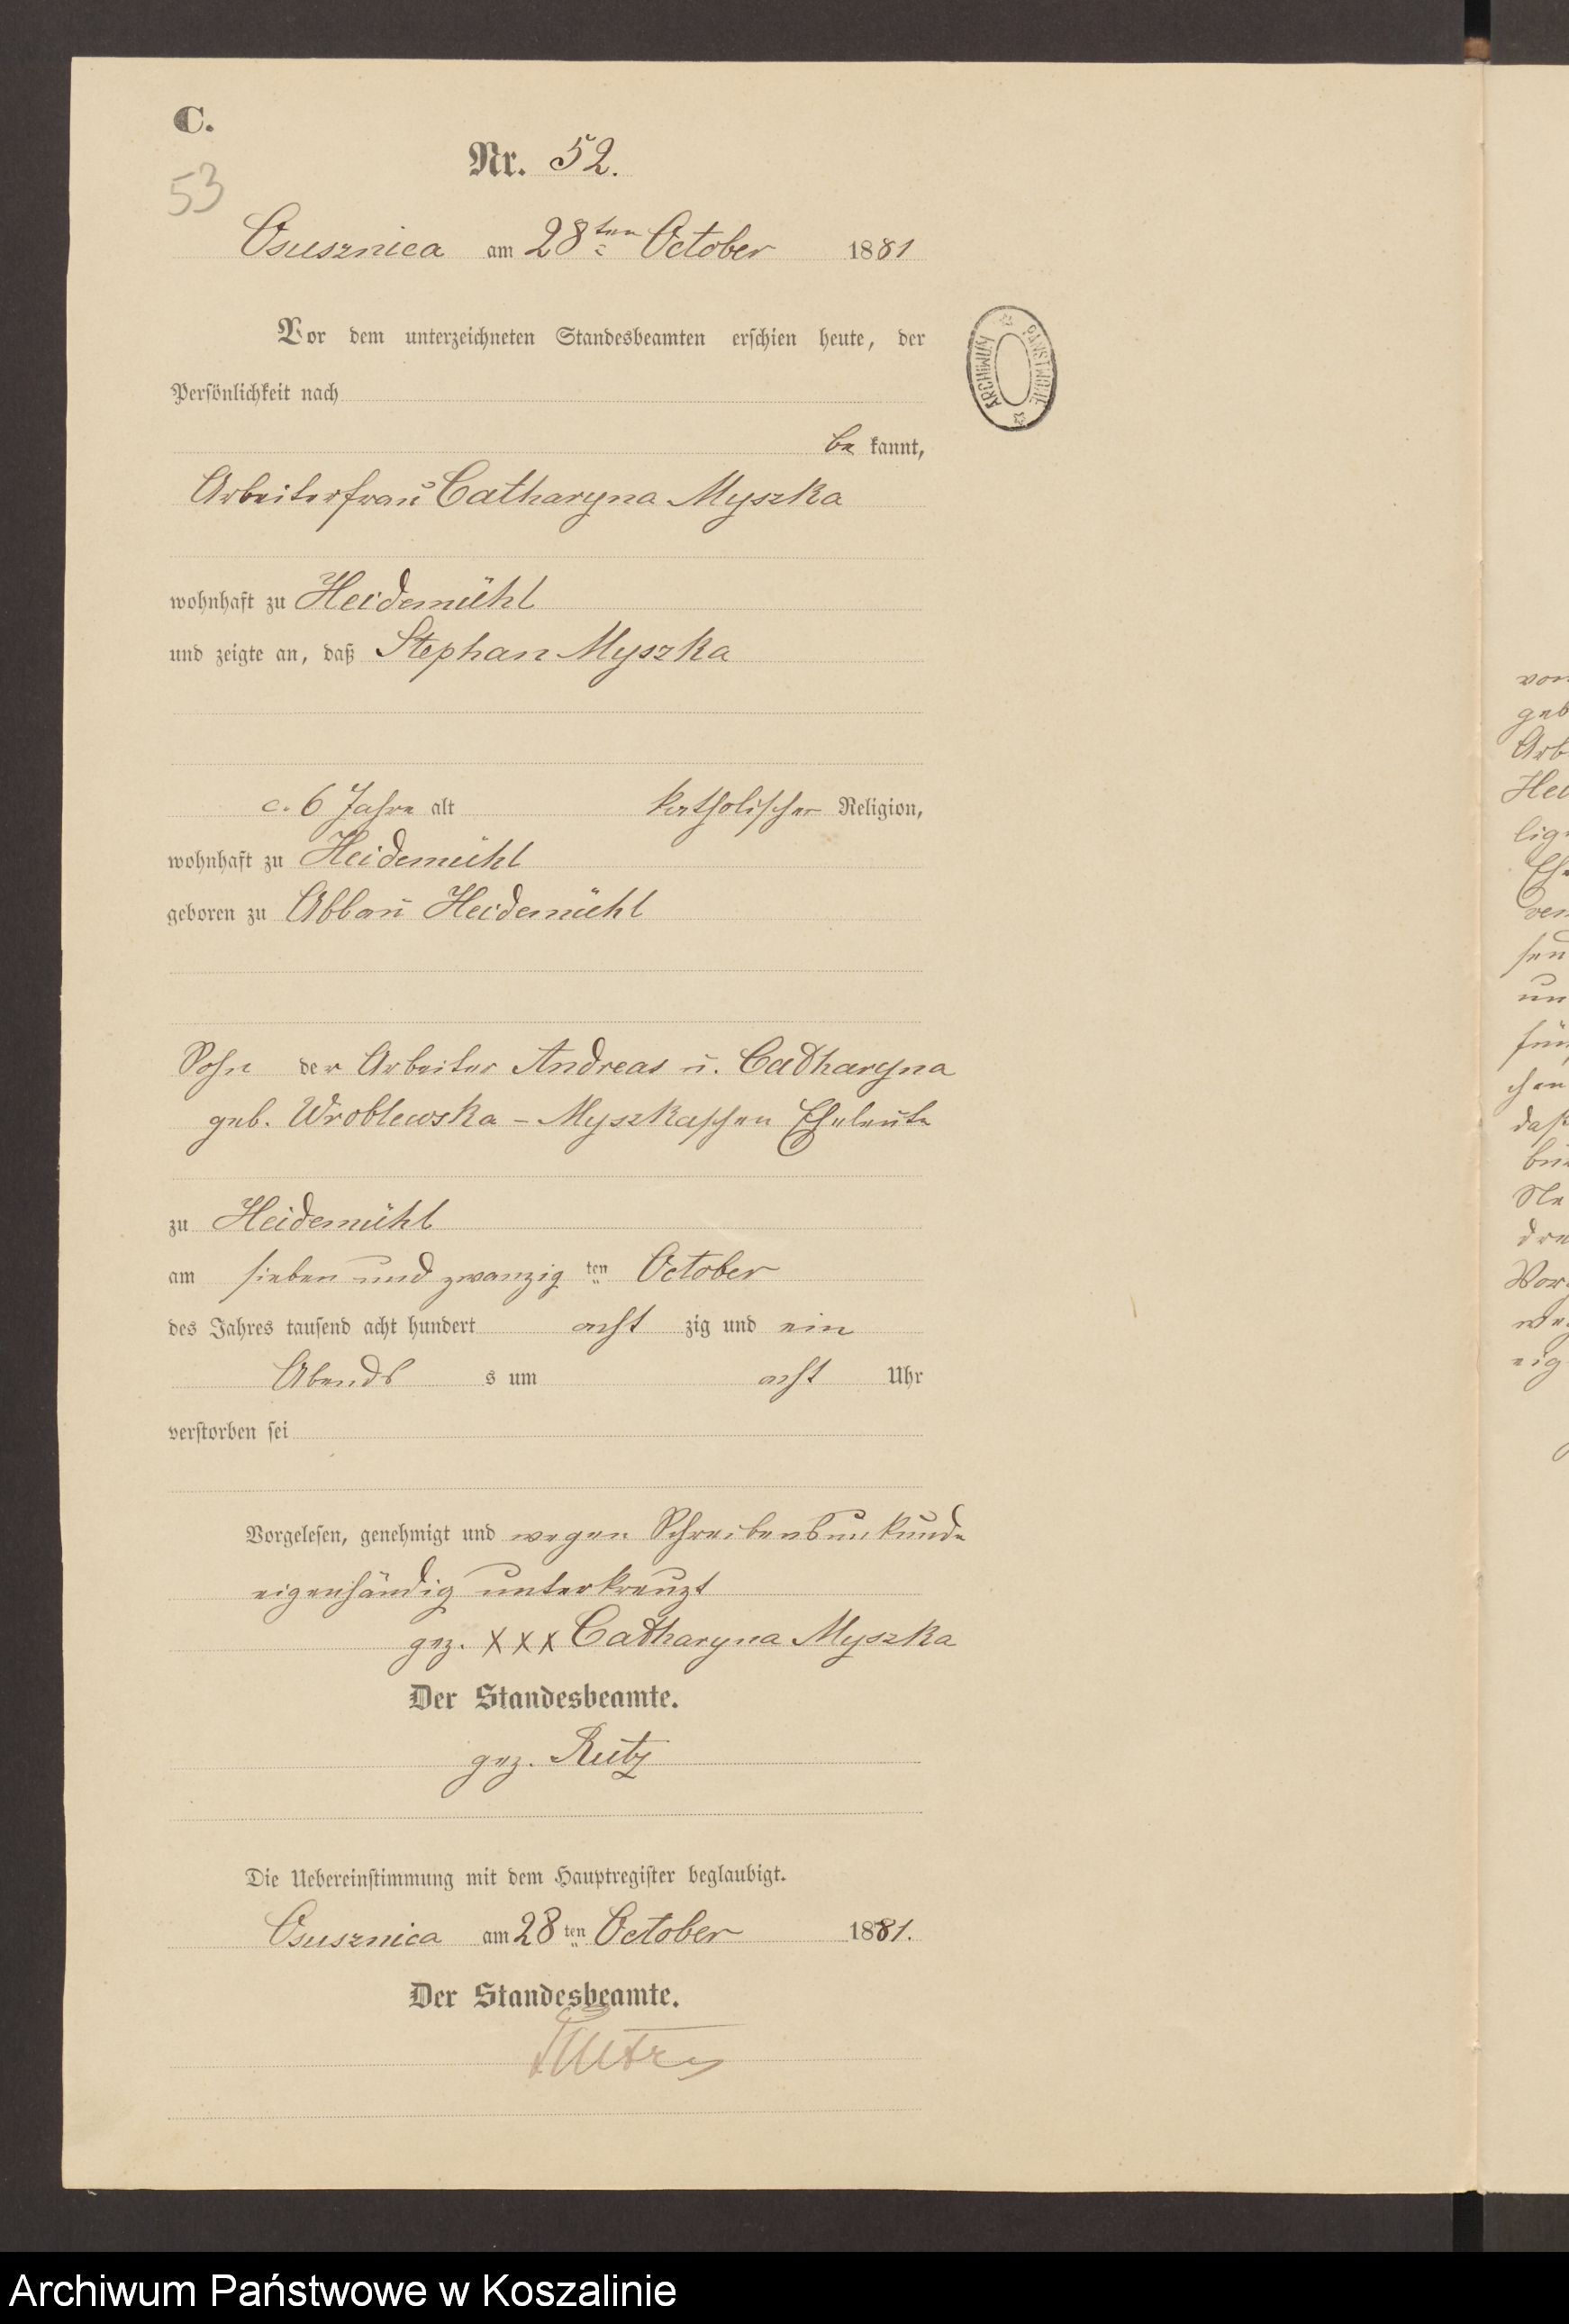 C.
Nr. 52.
53
Osusznica am 28ten October 1881
Vor dem unterzeichneten Standesbeamten erschien heute, der
Persönlichkeit nach
be kannt,
Arbeiterfrau Catharyna Myszka
wohnhaft zu Heidemühl
und zeigte an, daß Stephan Myszka
c. 6 Jahre alt katholischer Religion,
wohnhaft zu Heidemühl
geboren zu Abbau Heidemühl
Sohn der Arbeiter Andreas u. Catharyna
geb. Wroblewska - Myszkaschen Eheleute
zu Heidemühl
am sieben und zwanzig ten October
des Jahres tausend acht hundert acht zig und ein
Abends s um acht Uhr
verstorben sei
Vorgelesen, genehmigt und wegen Schreibensunkunde
eigenhändig unterkreuzt
gez. XXX Catharyna Myszka
Der Standesbeamte.
gez. Rutz
Die Uebereinstimmung mit dem Hauptregister beglaubigt.
Osusznica am 28 ten October 1881.
Der Standesbeamte.
Rutz
ARCHIWUM PAŃSTWOWE
von
geb
Arb
Hei
lig
sen
un
fün
daß
Vor
eig
Archiwum Państwowe w Koszalinie